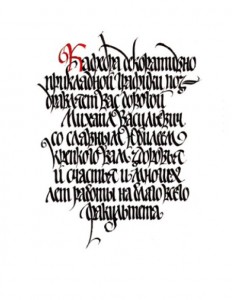 Кафедра декоративно
прикладной графики поз
дравляет Вас дорогой
Михаил Васильевич
со славным юбилеем
крепкого Вам здоровья
и счастья и многих
лет работы на благо всего
факультета